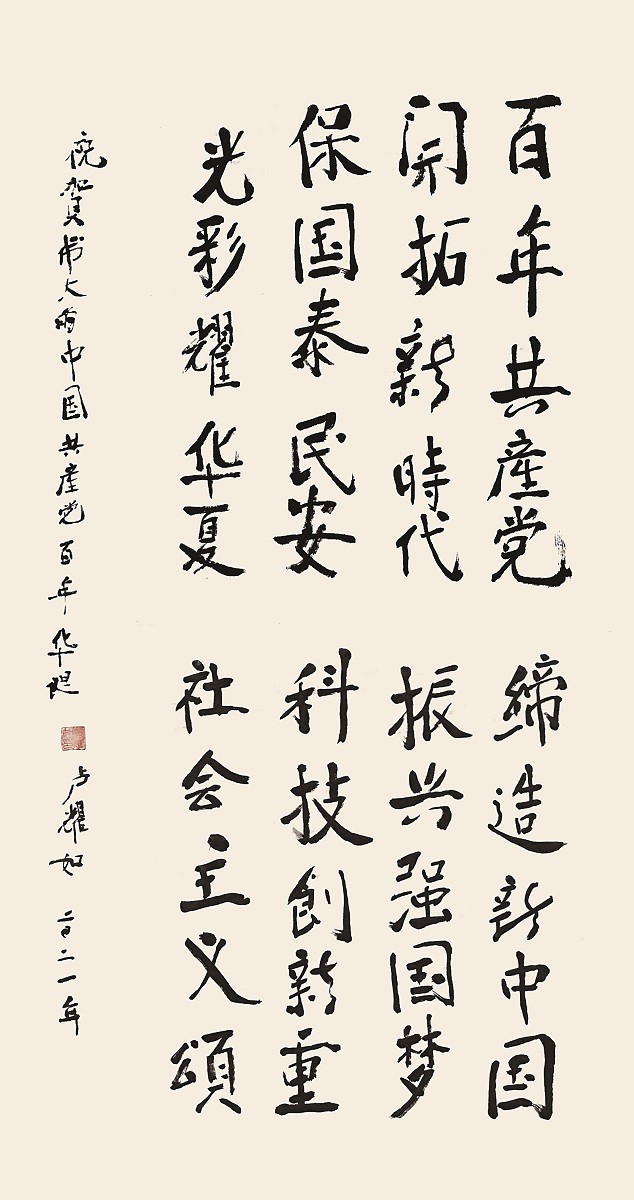 百年共產党 締造新中国
開拓新時代 振兴强国梦
保国泰民安 科技創新重
光彩耀华夏 社会主义頌
祝贺伟大的中国共產党百年华诞 卢耀如 二〇二一年